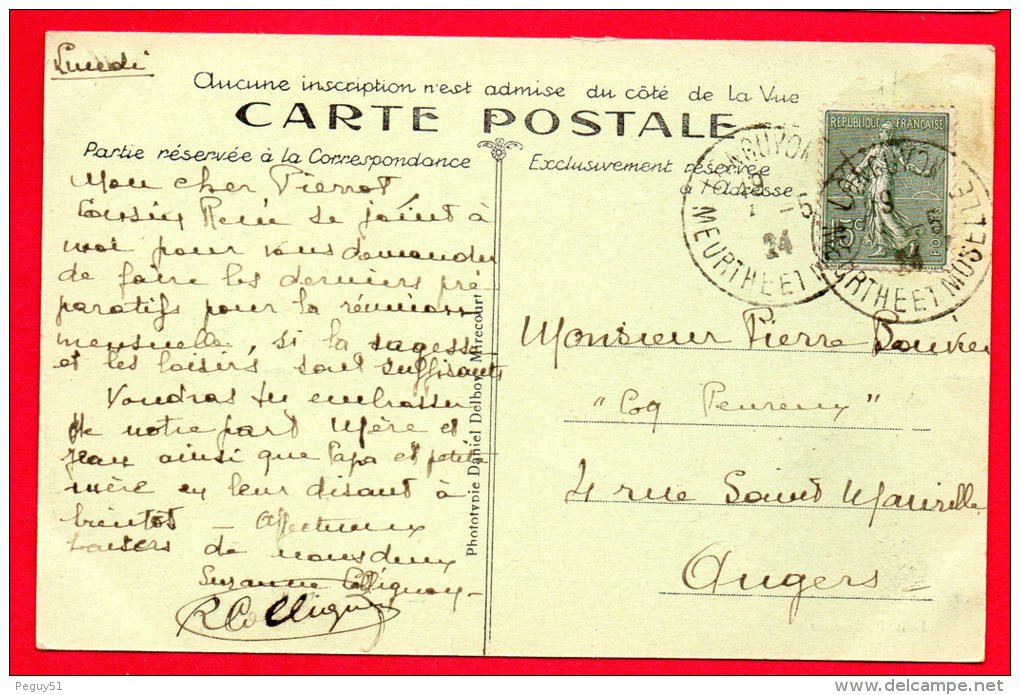 Lundi
Aucune inscription n'est admise du côté de la Vue
CARTE POSTALE
Partie réservée à la Correspondance
Exclusivement réservée
à l'Adresse
RÉPUBLIQUE FRANÇAISE
15c
POSTES
LONGUYON
9
-5
24
MEURTHE ET MOSELLE
LONGUYON
9
24
MEURTHE ET MOSELLE
Mon cher Pierrot,
Cousin René se joint à
moi pour vous demander
de faire les derniers pré
paratifs pour la réunion
mensuelle, si la sagesse
et les loisirs sont suffisants
Voudras tu embrasser
de notre part Mère et
Jean ainsi que Papa et petite
mère en leur disant à
bientôt – Affectueux
baisers de nous deux
Suzanne Collignon –
R Collignon
Phototypie Daniel Delboy, Mirecourt
Monsieur Pierre
"Coq Peureux"
4 rue Saint Maurille
Angers
Peguy51
www.delcampe.net